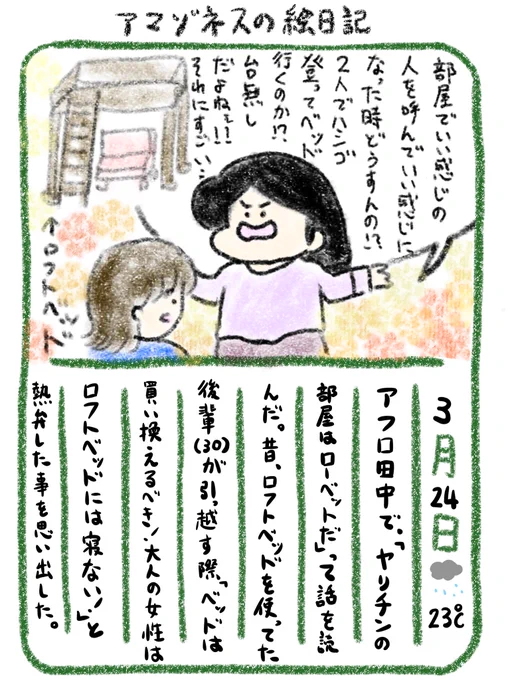 アマゾネスの絵日記
部屋でいい感じの
人を呼んでいい感じに、
なった時どうすんの!?
2人でハシゴ
登ってベッド
行くのか!?
台無し
だよねぇ!!
それにすごい…
↑ロフトベッド
3月24日
23℃
アフロ田中で、「ヤリチンの
部屋はローベットだ」って話を読
んだ。昔、ロフトベッドを使ってた
後輩(30)が引っ越す際、「ベッドは
買い換えるべき!大人の女性は
ロフトベッドには寝ない!」と
熱弁した事を思い出した。